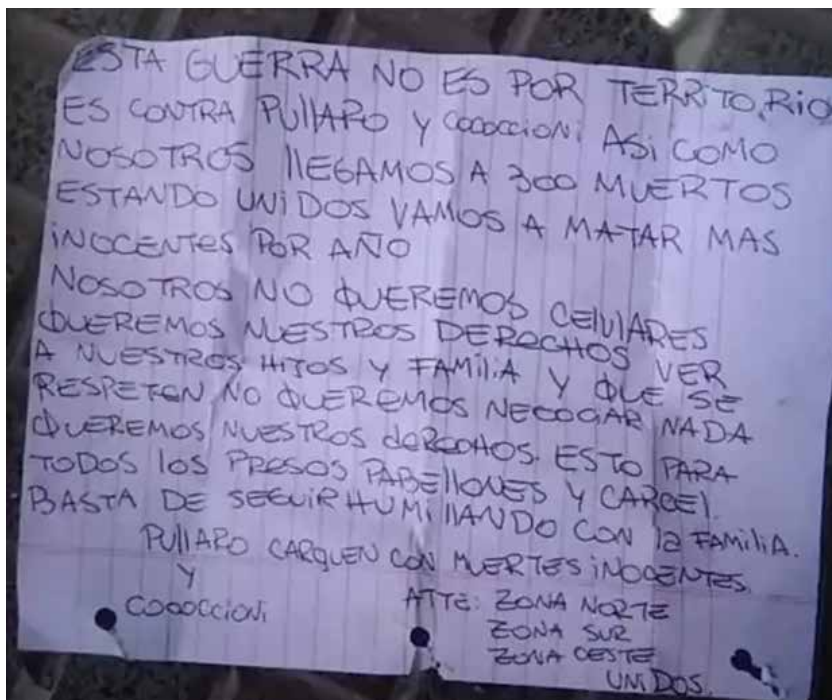 ESTA GUERRA NO ES POR TERRITO,RIO
ES CONTRA PUllARO Y COCOCCIONi ASi COMO
NOSOTROS llEGAMOS A 300 MUERTOS
ESTANDO UNiDOS VAMOS A MATAR MAS
iNOCENTES POR AÑO
NOSOTROS NO QUEREMOS CElUlARES
QUEREMOS NUESTROS DERECHOS VER
A NUESTROS HIJOS Y FAMiliA Y QUE SE
RESPETEN NO QUEREMOS NECOGAR NADA
QUEREMOS NUESTROS dERECHOS. ESTO PARA
TODOS lOS PRESOS PABEllONES Y CARCEl.
BASTA DE SEGUiR HUMillANDO CON la FAMiliA.
PUllARO CARGUEN CON MUERTES iNOCENTES.
Y
COCOCCiONi
ATTE: ZONA NORTE
ZONA SUR
ZONA OESTE
UNiDOS.